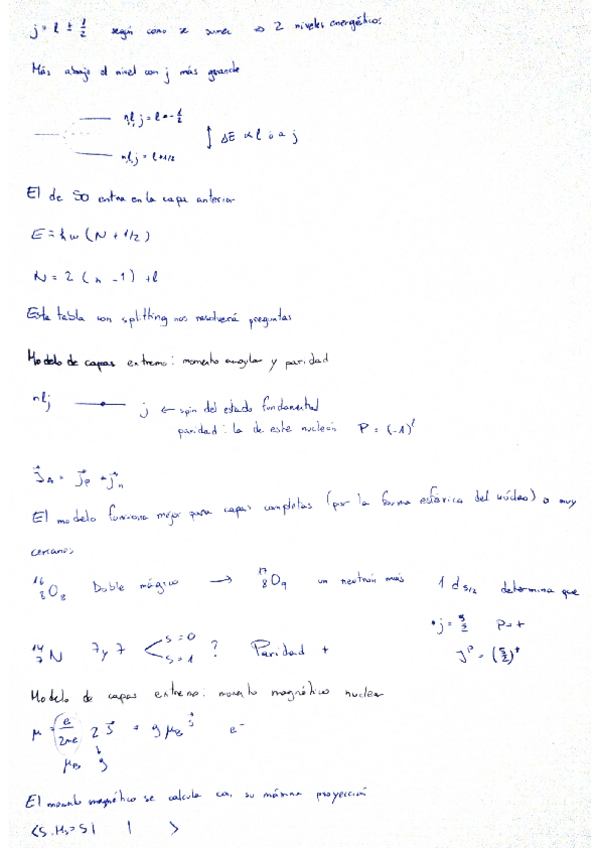 j = l ± 1/2 según como se sumen ⇒ 2 niveles energéticos
Más abajo el nivel con j más grande
nl, j = l - 1/2
ΔE ∝ l o a j
nl, j = l + 1/2
El de SO entra en la capa anterior
E = ħω (N + 1/2)
N = 2 (n - 1) + l
Esta tabla con splitting nos resolverá preguntas
Modelo de capas extremo: momento angular y paridad
nlj j ← spin del estado fundamental
paridad: la de este nucleón P = (-1)^l
J⃗A = J⃗p + J⃗n
El modelo funciona mejor para capas completas (por la forma esférica del núcleo) o muy
cercanos
16 8 O 8 Doble mágico → 17 8 O 9 un neutrón más 1 d 5/2 determina que
• j = 5/2 P = +
J^P = (5/2)^+
14 7 N 7 y 7 < S = 0 S = 1 ? Paridad +
Modelo de capas extremo: momento magnético nuclear
μ = e/2me 2 S⃗ = g μB S⃗ e⁻
μB g
El momento magnético se calcula con su máxima proyección
⟨S, Ms = S | | ⟩